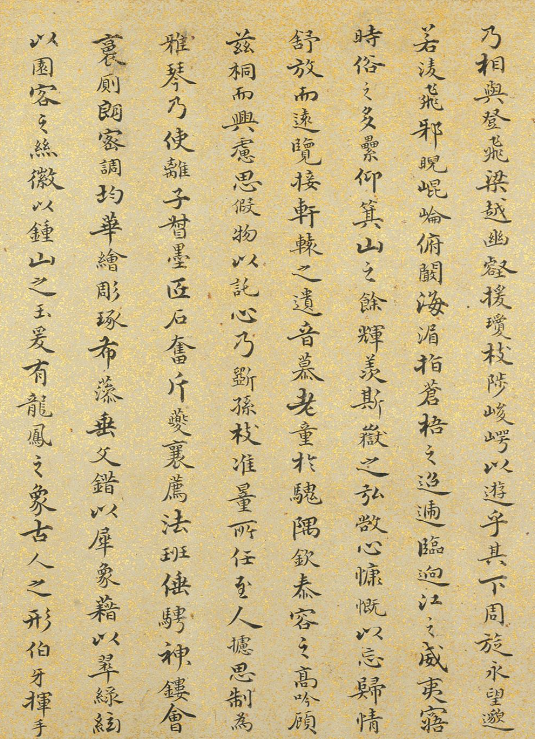 乃相與登飛梁越幽壑援瓊枝陟峻崿以遊乎其下周旋永望邈
若淩飛邪睨崐崘俯闞海湄指蒼梧之迢遞臨迴江之威夷寤
時俗之多纍仰箕山之餘輝羨斯嶽之弘敞心慷慨以忘歸情
舒放而遠覽接軒轅之遺音慕老童於騩隅欽泰容之高吟顧
兹桐而興慮思假物以託心乃斵孫枝准量所任至人攄思制為
雅琴乃使離子督墨匠石奮斤夔襄薦法班倕騁神鏤會
裛厠朗密調均華繪彫琢布藻垂文錯以犀象藉以翠綠絃
以園客之絲徽以鍾山之玉爰有龍鳳之象古人之形伯牙揮手